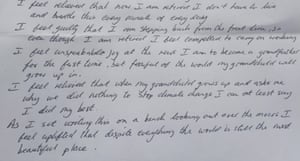 I feel relieved that now I am retired I don't have to live
and breathe this every minute of every day
I feel guilty that I am stepping back from the front line, so
even though I am retired I feel compelled to carry on working
I feel unspeakable joy at the news I am to become a grandfather
for the first time, but fearful of the world my grandchild will
grow up in.
I feel relieved that when my grandchild grows up and asks me
why we did nothing to stop climate change I can at least say
I did my best.
As I sit writing this on a bench looking out over the moors I
feel uplifted that despite everything the world is still the most
beautiful place.